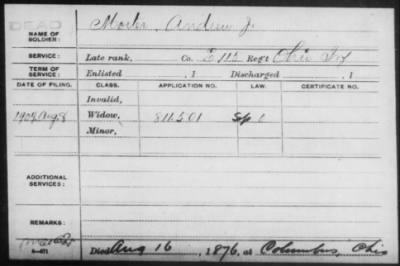 DEAD
NAME OF SOLDIER: Andrew J.
SERVICE: Late rank, Co. E 115 Reg't Ohio Inf
TERM OF SERVICE: Enlisted , 1 Discharged , 1
DATE OF FILING. CLASS. APPLICATION NO. LAW. CERTIFICATE NO.
Invalid,
1904 Aug 8 Widow, 811501
Minor,
ADDITIONAL SERVICES:
REMARKS:
Died Aug 16, 1876, at Columbus, Ohio